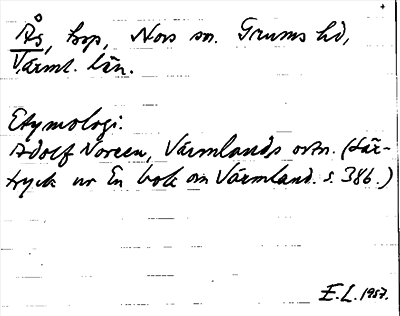 Ås, trp, Nors sn. Grums hd,
Värml. län.
Etymologi:
Adolf Noreen, Värmlands ortn. (Sär-
tryck ur En bok om Värmland. s. 386.)
E.L. 1957.